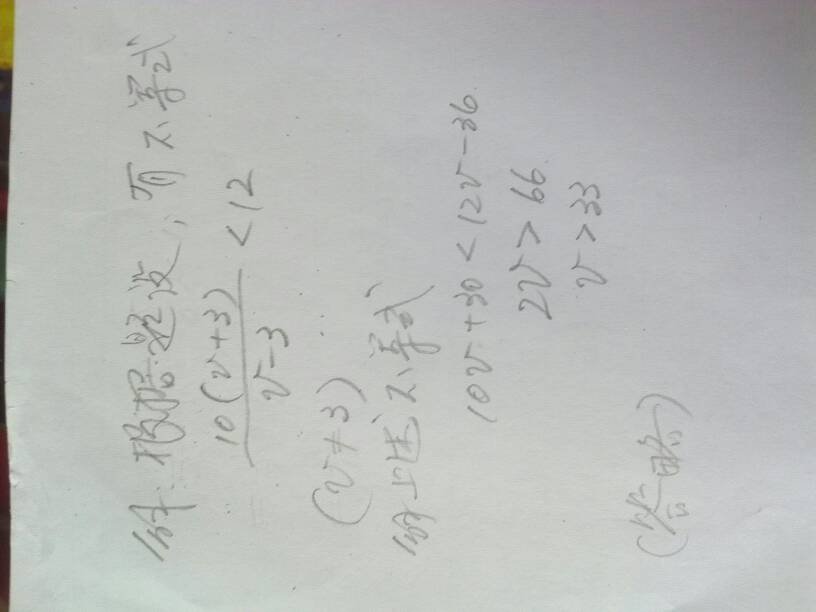 解:根据题设,有不等式
10(v+3)/v-3 < 12
(v≠3)
解上述不等式
10v+30<12v-36
2v>66
v>33
(答略)